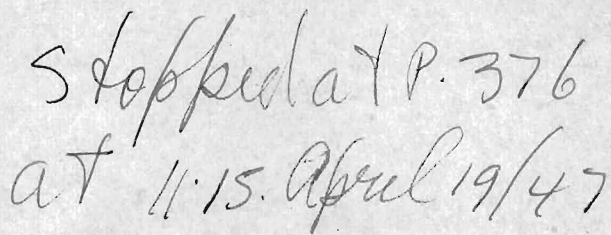 Stopped at P. 376
at 11.15. April 19/47